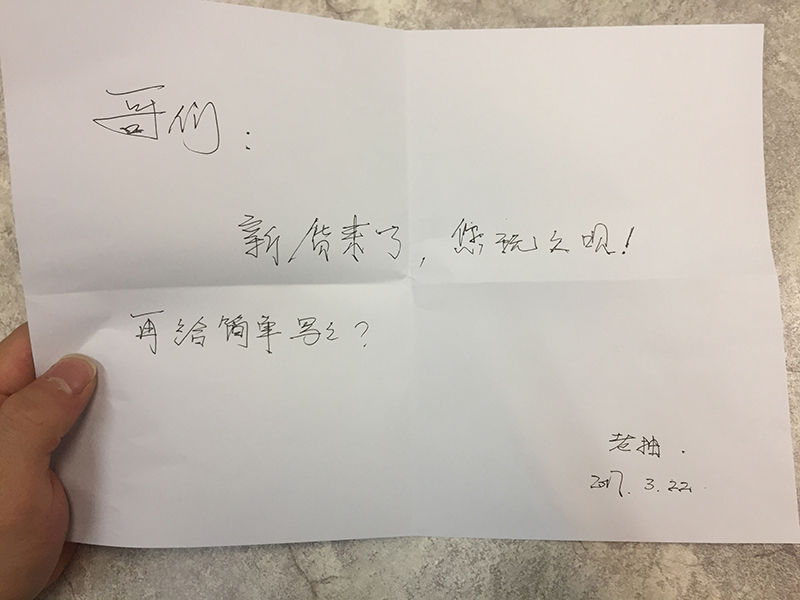 哥们：
新货来了，您玩之呗！
再给简单写之？
老抽.
2017.3.22.